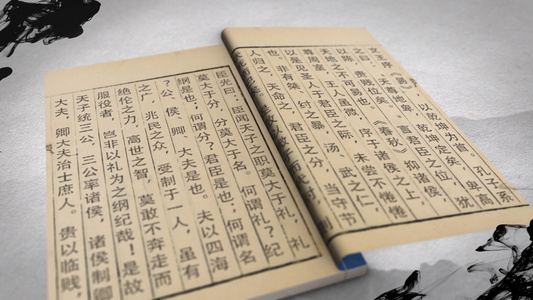 文王序《易》，以乾坤为首。孔子系
之曰：“天尊地卑，乾坤定矣，卑高
以陈，贵贱位矣。”言君臣之位，犹
天地之不可易也。《春秋》抑诸侯，
尊周室，王人虽微，序于诸侯之上，
以是见圣人于君臣之际，未尝不惓惓
也。非有桀、纣之暴，汤、武之仁，
人归之，天命之，君臣之分，当守节
臣光曰：臣闻天子之职莫大于礼，礼
莫大于分，分莫大于名。何谓礼？纪
纲是也；何谓分？君臣是也；何谓名
？公、侯、卿、大夫是也。夫以四海
之广，兆民之众，受制于一人，虽有
绝伦之力，高世之智，莫敢不奔走而
服役者，岂非以礼为之纲纪哉！是故
天子统三公，三公率诸侯，诸侯制卿
大夫，卿大夫治士庶人。贵以临贱，